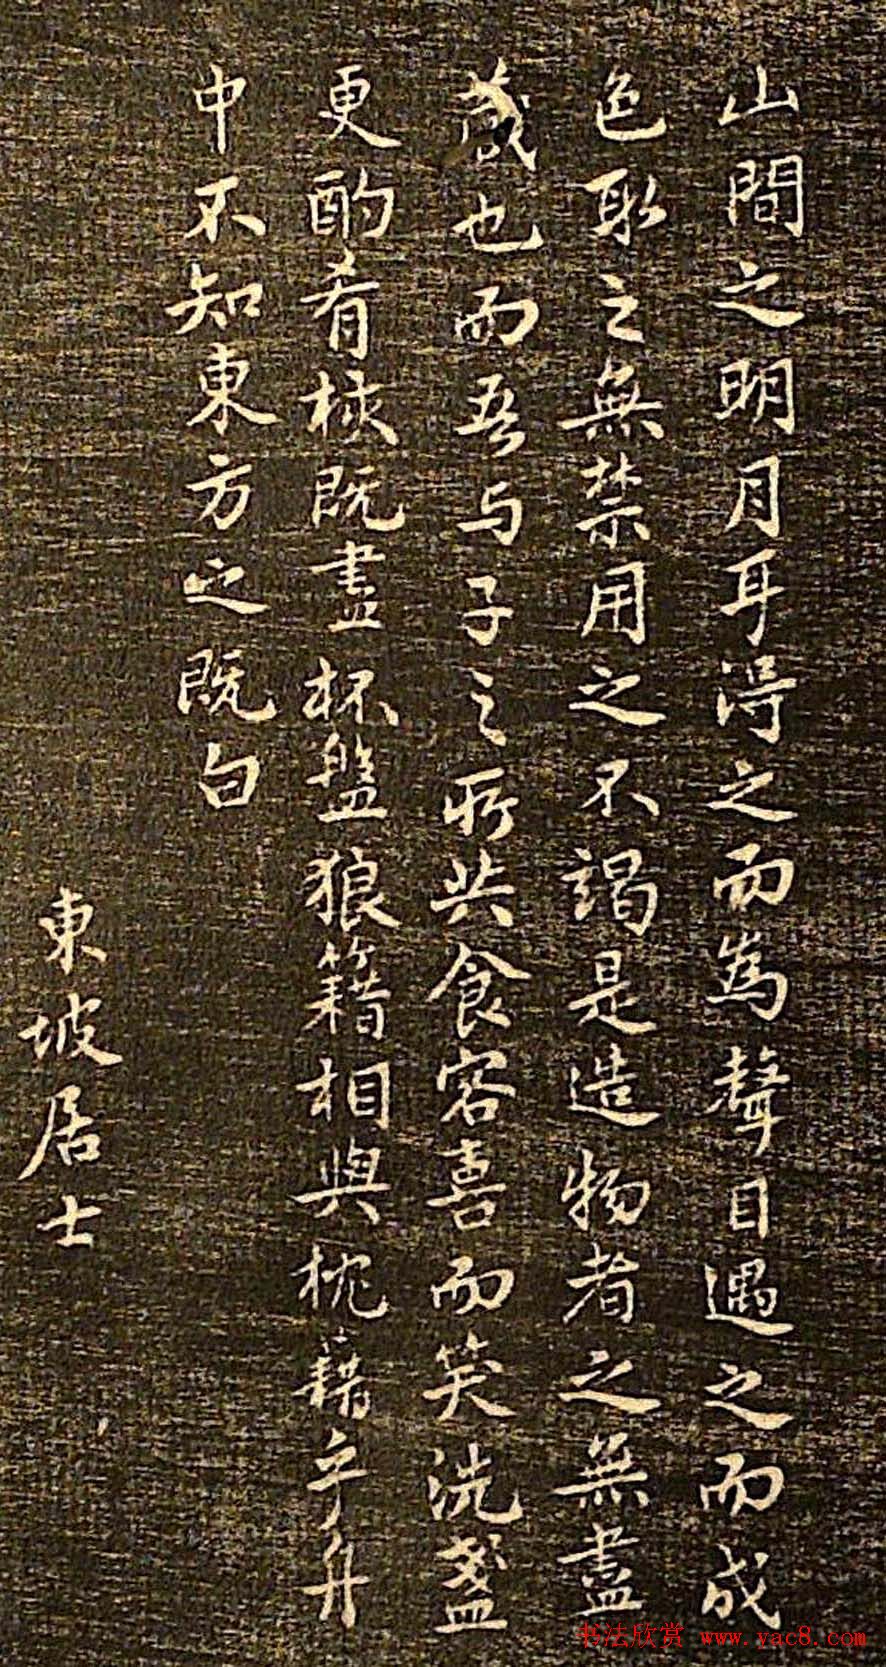 山間之明月耳得之而為聲目遇之而成
色取之無禁用之不竭是造物者之無盡
藏也而吾與子之所共食客喜而笑洗盞
更酌肴核既盡杯盤狼籍相與枕藉乎舟
中不知東方之既白
東坡居士
书法欣赏 www.yac8.com